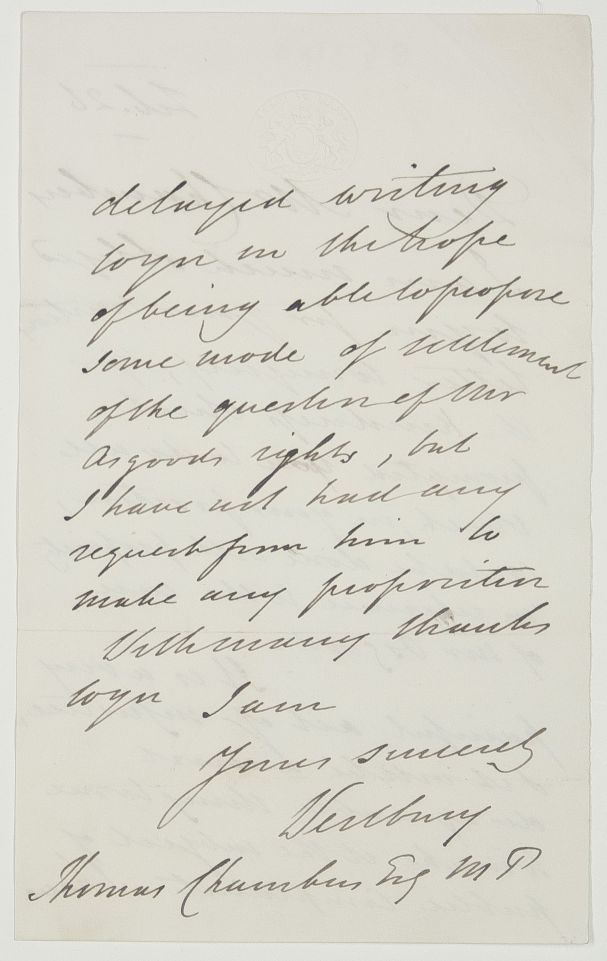 delayed writing
to you in the hope
of being able to propose
some mode of settlement
of the question of Mr
Asgoods rights, but
I have not had any
request from him to
make any proposition
With many thanks
to you I am
Yours sincerely
Westbury
Thomas Chambers Esq MP